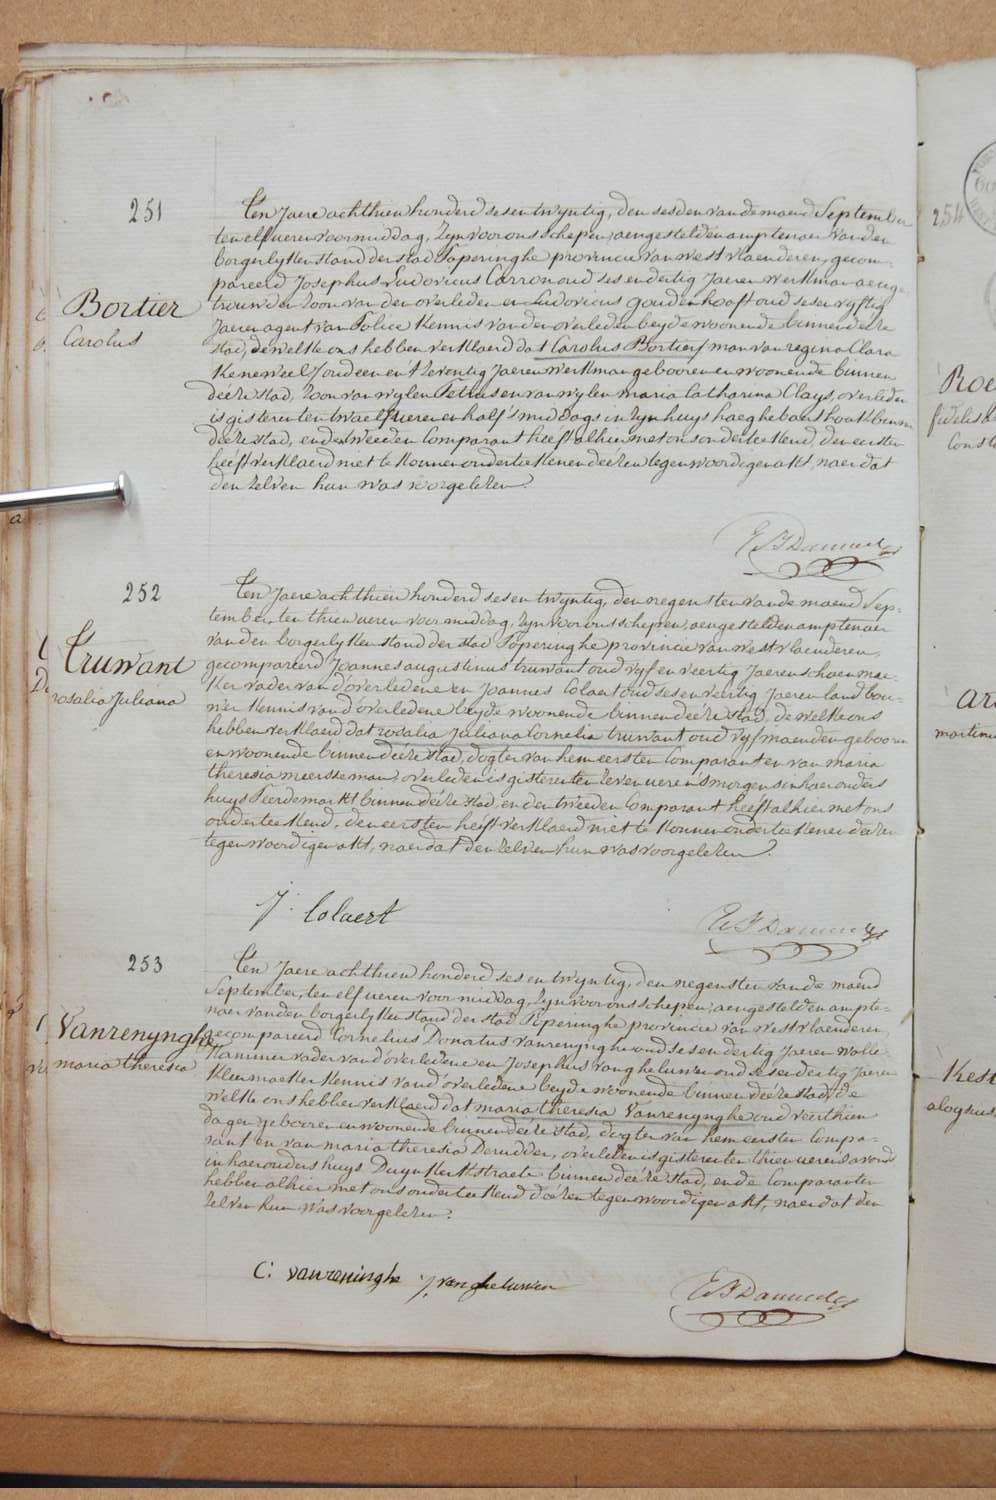 251
Bortier
Carolus
Ten Jaere achthien honderd ses en twyntig, den sesden van de maend September
ten elf ueren voormiddag, zyn voor ons schepen, aengestelden amptenaer van den
borgerlyken stand der stad Poperinghe provincie van westvlaenderen, gecom-
pareerd Josephus Ludovicus Carron oud ses en dertig Jaeren werkman aenge-
trouwden zoon van den overleden en Ludovicus Goudenhooft oud ses en vyftig
Jaeren agent van Police kennis van den overleden beyde woonende binnen deeze
stad, de welke ons hebben verklaerd dat Carolus Bortier man van regina Clara
Keneweel, oud een en tzeventig Jaeren werkman gebooren en woonende binnen
deéze stad, zoon van wylen Petrus en van wylen maria Catharina Clays, overleden
is gisteren ten twaelf ueren en half 's middags in zyn huys haeghebaert houk binnen
deéze stad, en den tweeden Comparant heeft alhier met ons onderteekend, den eersten
heeft verklaerd niet te konnen onderteekenen deézen tegenwoordigen akt, naer dat
den zelven hun was voorgelezen.
252
Truwant
rosalia Juliana
Ten Jaere achthien honderd ses en twyntig, den negensten van de maend Sep-
tember, ten thien ueren voormiddag, zyn voor ons schepen, aengestelden amptenaer
van den borgerlyken stand der stad Poperinghe provincie van westvlaenderen,
gecompareerd Joannes augustinus truwant oud vyf en veertig Jaeren schoenmae-
ker vader van d'overledene en Joannes Colaert oud ses en veertig Jaeren landbou-
wer kennis van d'overledene beyde woonende binnen deéze stad, de welke ons
hebben verklaerd dat rosalia Juliana Cornelia truwant oud vyf maenden gebooren
en woonende binnen deéze stad, dogter van hem eersten Comparant en van maria
theresia meersseman, overleden is gisteren ten zeven ueren 's morgens in haer ouders
huys Peerdemarkt binnen deéze stad, en den tweeden Comparant heeft alhier met ons
onderteekend, den eersten heeft verklaerd niet te konnen onderteekenen deézen
tegenwoordigen akt, naer dat den zelven hun was voorgelezen.
J: Colaert
253
Vanrenynghe
maria theresia
Ten Jaere achthien honderd ses en twyntig, den negensten van de maend
September, ten elf ueren voormiddag, zyn voor ons schepen, aengestelden ampte-
naer van den borgerlyken stand der stad Poperinghe provincie van westvlaenderen,
gecompareerd Cornelius Donatus vanrenynghe oud ses en dertig Jaeren wolle-
kammer vader van d'overledene en Josephus vangheluwe oud ses en dertig Jaeren
kleermaeker kennis van d'overledene beyde woonende binnen deéze stad, de
welke ons hebben verklaerd dat maria theresia Vanrenynghe oud veerthien
dagen gebooren en woonende binnen deéze stad, dogter van hem eersten Compa-
rant en van maria theresia Derudder, overleden is gisteren ten thien ueren 's avonds
in haer ouders huys Duynkerkstraete binnen deéze stad, en de Comparanten
hebben alhier met ons onderteekend deézen tegenwoordigen akt, naer dat den
zelven hun was voorgelezen.
C: vanreninghe J. vanghelurwen
254